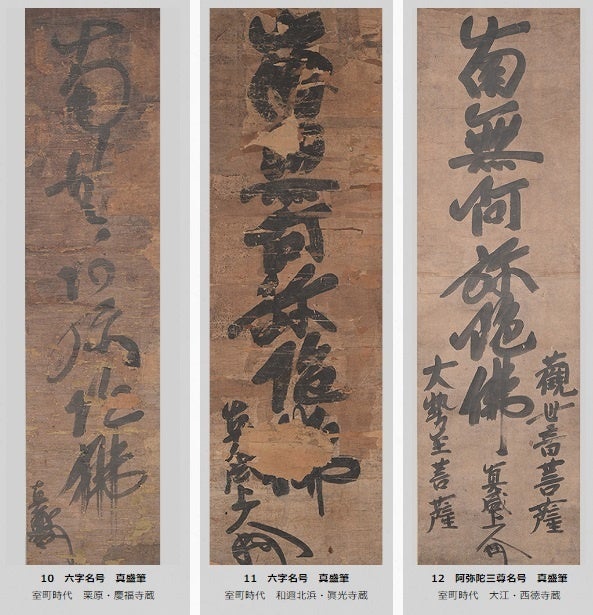 南無阿弥陀佛
10 六字名号 真盛筆
室町時代 栗原・慶福寺蔵
南無阿弥陀佛
真盛上人
11 六字名号 真盛筆
室町時代 和迩北浜・眞光寺蔵
南無阿弥陀佛
觀世音菩薩
大勢至菩薩
真盛上人
12 阿弥陀三尊名号 真盛筆
室町時代 大江・西徳寺蔵